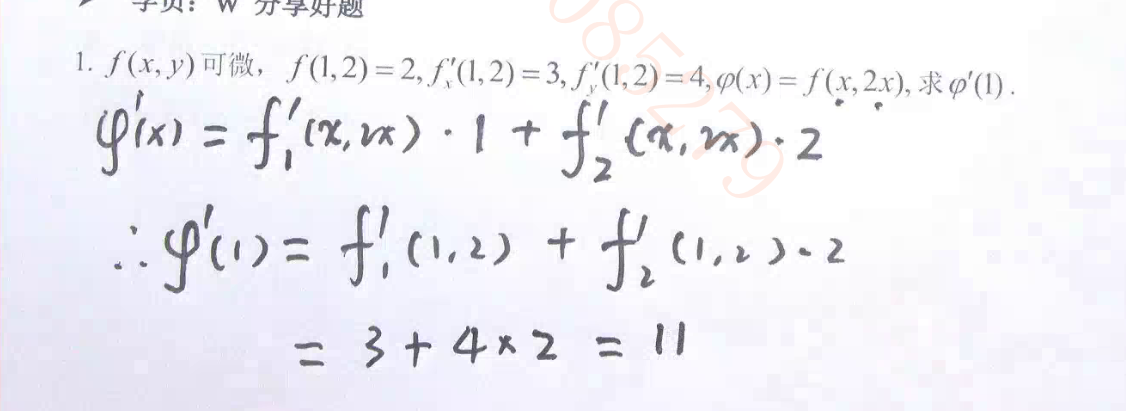 学员：W 分享好题
1. f(x, y) 可微，f(1,2) = 2, f′ₓ(1,2) = 3, f′ᵧ(1,2) = 4, φ(x) = f(x, 2x), 求 φ′(1).
φ′(x) = f′₁(x, 2x) · 1 + f′₂(x, 2x) · 2
∴ φ′(1) = f′₁(1, 2) + f′₂(1, 2) · 2
= 3 + 4 × 2 = 11
085279